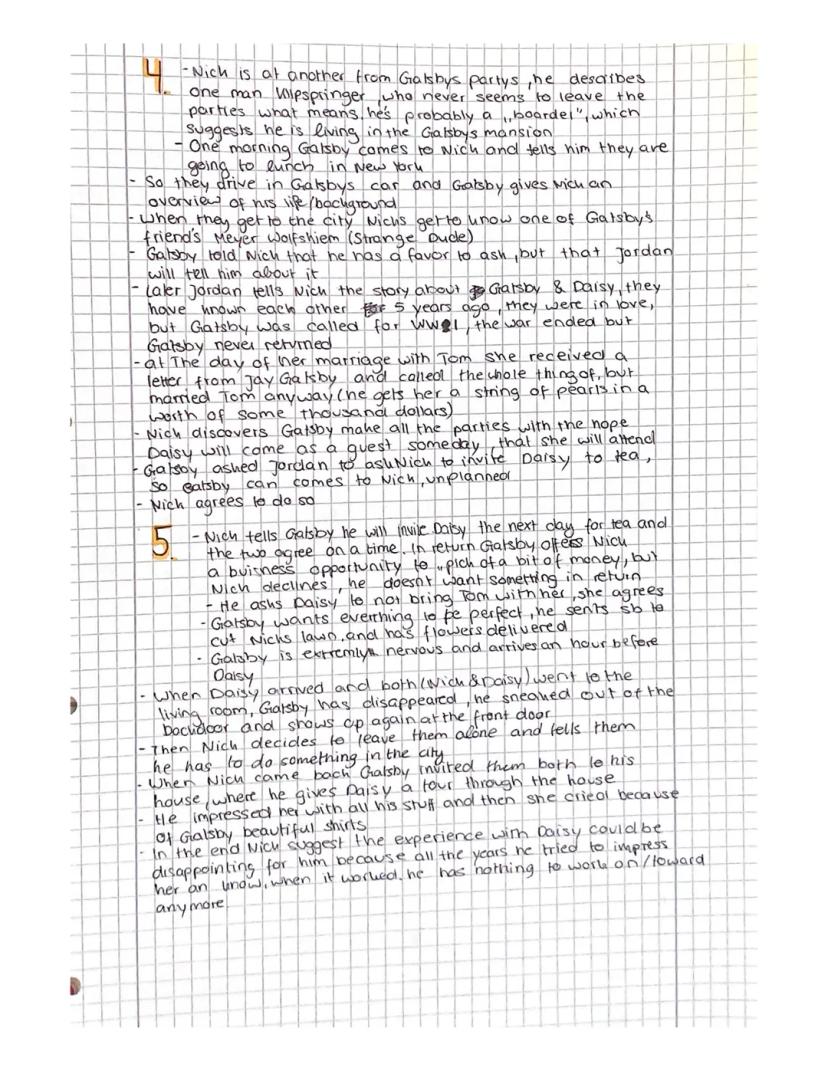 4. - Nich is at another from Gatsbys partys, he describes
one man Klipspringer, who never seems to leave the
parties what means, he's probably a „boarder", which
suggests he is living in the Gatsbys mansion
- One morning Gatsby comes to Nich and tells him they are
going to lunch in New York
- So they drive in Gatsbys car and Gatsby gives Nich an
overview of his life/background
- When they get to the city Nichs get to know one of Gatsby's
friend's Meyer Wolfshiem (Strange Dude)
- Gatsby told Nich that he has a favor to ask, but that Jordan
will tell him about it
- Later Jordan tells Nich the story about Gatsby & Daisy, they
have known each other 5 years ago, they were in love,
but Gatsby was called for WW1, the war ended but
Gatsby never returned
- at The day of her marriage with Tom she received a
letter from Jay Gatsby and called the whole thing of, but
married Tom anyway (he gets her a string of pearls in a
worth of some thousand dollars)
- Nich discovers Gatsby make all the parties with the hope
Daisy will come as a guest someday, that she will attend
- Gatsby asked Jordan to ask Nich to invite Daisy to tea,
so Gatsby can comes to Nich, unplanned
- Nich agrees to do so
5. - Nich tells Gatsby he will invite Daisy the next day for tea and
the two agree on a time. In return Gatsby offers Nich
a buisness opportunity to „pich of a bit of money, but
Nich declines, he doesnt want something in return
- He asks Daisy to not bring Tom with her, she agrees
- Gatsby wants everthing to be perfect, he sents sb to
cut Nichs lawn, and has flowers delivered
- Gatsby is extremly nervous and arrives an hour before
Daisy
- When Daisy arrived and both (Nich & Daisy) went to the
living room, Gatsby has disappeared, he sneaked out of the
backdoor and shows up again at the front door
- Then Nich decides to leave them alone and tells them
he has to do something in the city
- When Nich came back Gatsby invited them both to his
house, where he gives Daisy a tour through the house
- He impressed her with all his stuff and then she cried because
of Gatsby beautiful shirts
- In the end Nich suggest the experience with Daisy could be
disappointing for him because all the years he tried to impress
her an know, when it worked, he has nothing to work on/toward
anymore.